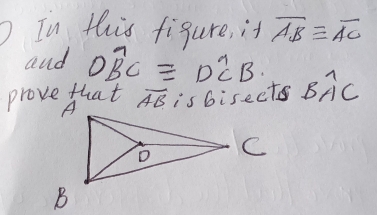 ) In this figure, if A̅B̅ ≡ A̅C̅
and DB̂C ≡ DĈB.
prove that A̅B̅ is bisects BÂC
A
D
C
B